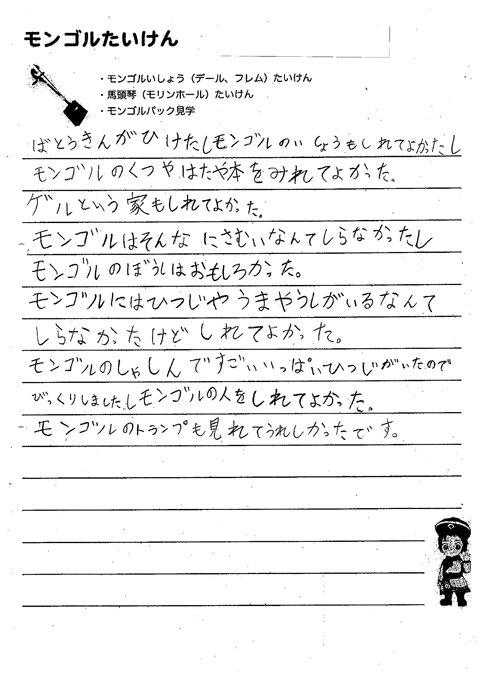 モンゴルたいけん
・モンゴルいしょう（デール、フレム）たいけん
・馬頭琴（モリンホール）たいけん
・モンゴルパック見学
ばとうきんがひけたしモンゴルのいしょうもしれてよかったし
モンゴルのくつやはたや本をみれてよかった。
ゲルという家もしれてよかった。
モンゴルはそんなにさむいなんてしらなかったし
モンゴルのぼうしはおもしろかった。
モンゴルにはひつじやうまやうしがいるなんて
しらなかったけどしれてよかった。
モンゴルのしゃしんですごいいっぱいひつじがいたので
びっくりしましたしモンゴルの人をしれてよかった。
モンゴルのトランプも見れてうれしかったです。